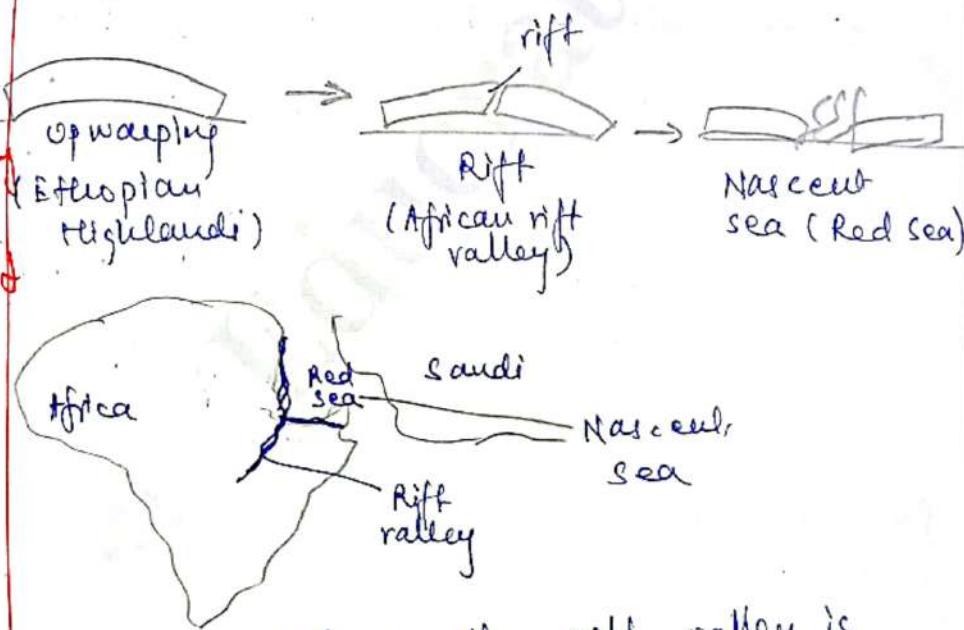 rift
Upwarping
(Ethopian
Highlandi)
Rift
(African rift
valley)
Nascent
sea (Red Sea)
Africa
Red
sea
Saudi
Nascent
sea
Rift
valley
the rift valley is